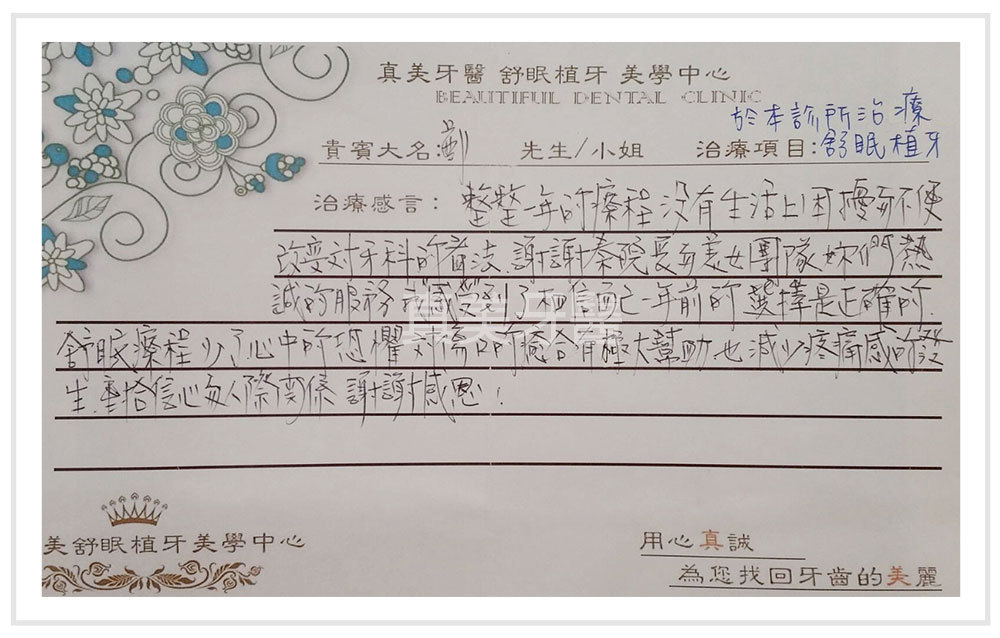 真美牙醫 舒眠植牙 美學中心
BEAUTIFUL DENTAL CLINIC
於本診所治療
貴賓大名: 先生/小姐 治療項目:舒眠植牙
治療感言: 整整一年的療程没有生活上困擾與不便
改变对牙科的看法.謝謝秦院長與美女團隊妳們熱
誠的服務 讓感受到了相信自己一年前的選擇是正確的.
真美牙醫
舒眠療程 少了心中的恐懼对傷口的癒合有極大幫助也減少疼痛感的
生.重拾信心與人際関係 謝謝感恩!
美舒眠植牙美學中心
用心真誠
為您找回牙齒的美麗